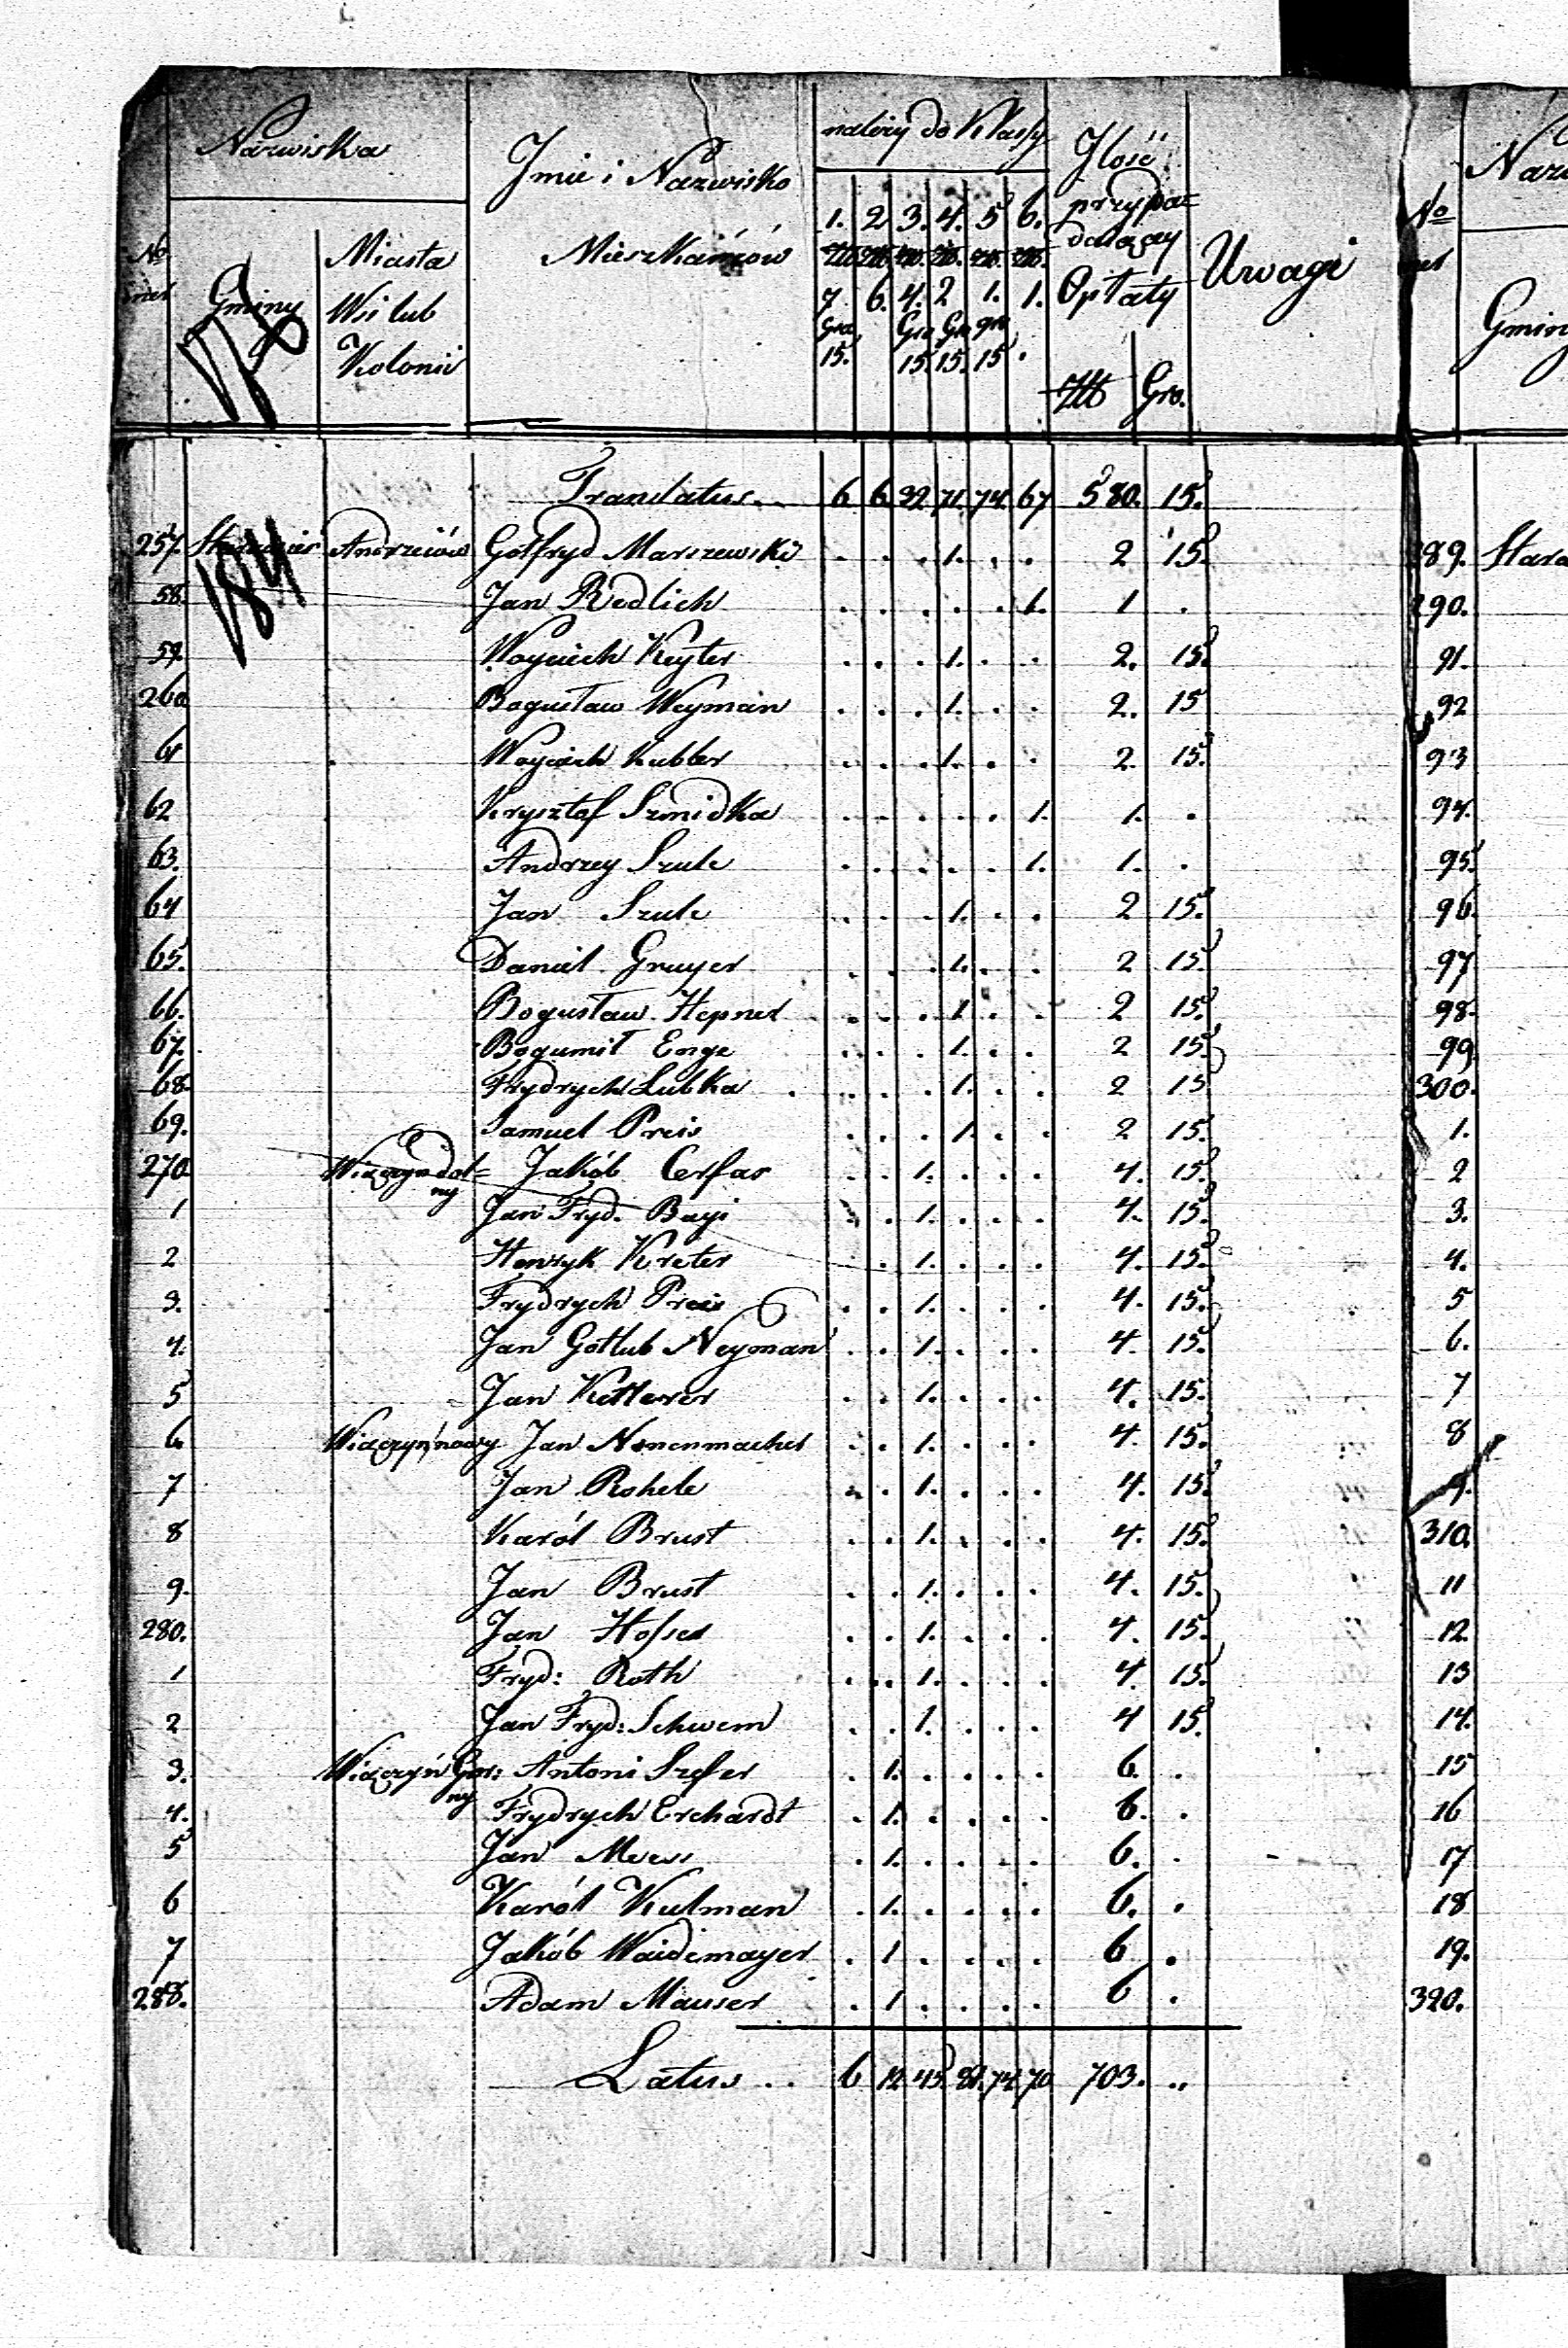 Nazwiska
Jmie i Nazwisko
Mieszkańców
należy do Klassy
Jlość
przypa=
daiącey
Opłaty
Uwagi
No
Gminy
Miasta
Wsi lub
Kolonii
1. 2 3. 4. 5 6.
Zło Zło Zło Zło Zło Zło
7 6. 4. 2 1. 1.
Gro Gro Gro gro
15. 15. 15. 15 .
Złt Gro.
184
Translatus 6 6 32. 71. 74. 67 580. 15.
257. Andrzeiów Gotfryd Marszewski . . . 1. . . 2 15.
58. Jan Redlich . . . . . 1. 1 .
59. Woyciech Keyter . . . 1. . . 2. 15.
260 Bogusław Weyman . . . 1. . . 2. 15
61 Woyciech Kubler . . . 1. . . 2. 15.
62 Krysztof Szmidka . . . . . 1. 1. .
63. Andrzey Szulc . . . . . 1. 1. .
64 Jan Szulc . . . 1. . . 2 15.
65. Daniel Grayer . . . 1. . . 2 15.
66. Bogusław Hepner . . . 1. . . 2 15.
67. Bogumił Enge . . . 1. . . 2 15.
68. Frydrych Lubka . . . 1. . . 2 15
69. Samuel Preis . . . 1. . . 2 15.
270 Wiączyn dol=
ny Jakób Cerfas . . 1. . . . 4. 15.
1 Jan Fryd. Bayi . . 1. . . . 4. 15.
2 Henryk Kreter . . 1. . . . 4. 15.
3. Frydrych Preis . . 1. . . . 4. 15.
4. Jan Gottlub Neyman . . 1. . . . 4. 15.
5 Jan Ketterer . . 1. . . . 4. 15.
6. Wiączyń nowy Jan Nonenmacher . . 1. . . . 4. 15.
7 Jan Rohele . . 1. . . . 4. 15.
8 Karól Brust . . 1. . . . 4. 15.
9. Jan Brust . . 1. . . . 4. 15.
280. Jan Hofser . . 1. . . . 4. 15.
1 Fryd: Roth . . 1. . . . 4. 15.
2 Jan Fryd: Schwem . . 1. . . . 4 15.
3. Wiączyń Gór:
ny Antoni Szefer . 1. . . . . 6. .
4. Frydrych Erchardt . 1. . . . . 6. .
5 Jan Meess . 1. . . . . 6. .
6 Karól Kulman . 1. . . . . 6. .
7 Jakób Waidemayer . 1 . . . . 6 .
288. Adam Mauser . 1 . . . . 6 .
Latus .. 6 12. 45. 81. 74. 70 703. ..
No
Gmin
289. Stara
290.
91.
92
93
94.
95.
96.
97
98.
99
300.
1.
2
3.
4.
5
6.
7
8
9.
310.
11
12.
13
14.
15
16
17
18
19.
320.